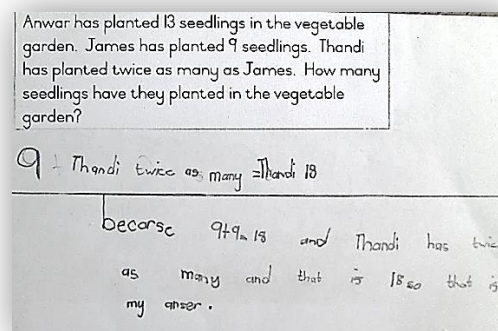 Anwar has planted 13 seedlings in the vegetable
garden. James has planted 9 seedlings. Thandi
has planted twice as many as James. How many
seedlings have they planted in the vegetable
garden?
9 + Thandi twice as many = Thandi 18
becarse 9+9= 18 and Thandi has twic
as many and that is 18 so that is
my anser.